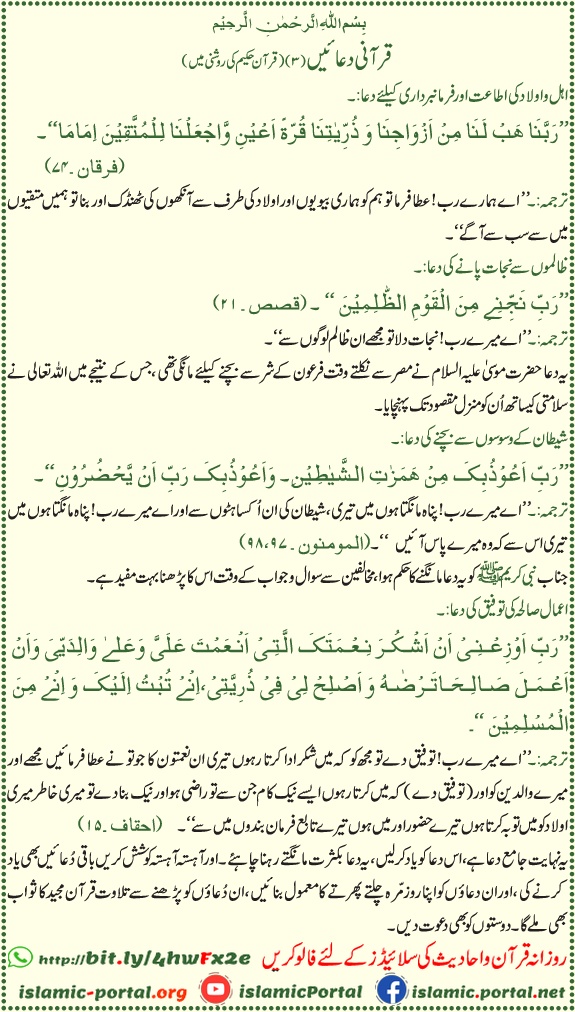 بِسْمِ اللهِ الرَّحْمٰنِ الرَّحِيْمِ
قرآنی دعائیں (۳) (قرآن حکیم کی روشنی میں)
اہل و اولاد کی اطاعت اور فرمانبرداری کیلئے دعا:۔
’’رَبَّنَا هَبْ لَنَا مِنْ اَزْوَاجِنَا وَ ذُرِّيّٰتِنَا قُرَّةَ اَعْيُنٍ وَّاجْعَلْنَا لِلْمُتَّقِيْنَ اِمَامًا‘‘۔
(فرقان۔۷۴)
ترجمہ:۔’’اے ہمارے رب! عطا فرما تو ہم کو ہماری بیویوں اور اولاد کی طرف سے آنکھوں کی ٹھنڈک اور بنا تو ہمیں متقیوں
میں سے سب سے آگے‘‘۔
ظالموں سے نجات پانے کی دعا:۔
’’رَبِّ نَجِّنِيْ مِنَ الْقَوْمِ الظّٰلِمِيْنَ‘‘ ۔(قصص۔۲۱)
ترجمہ:۔’’اے میرے رب! نجات دلا تو مجھے ان ظالم لوگوں سے‘‘۔
یہ دعا حضرت موسیٰ علیہ السلام نے مصر سے نکلتے وقت فرعون کے شر سے بچنے کیلئے مانگی تھی، جس کے نتیجے میں اللہ تعالی نے
سلامتی کیساتھ اُن کو منزل مقصود تک پہنچایا۔
شیطان کے وسوسوں سے بچنے کی دعا:۔
’’رَبِّ اَعُوْذُبِکَ مِنْ هَمَزٰتِ الشَّيٰطِيْنِ۔ وَاَعُوْذُبِکَ رَبِّ اَنْ يَّحْضُرُوْنِ‘‘۔
ترجمہ:۔’’اے میرے رب! پناہ مانگتا ہوں میں تیری، شیطان کی ان اُکساہٹوں سے اور اے میرے رب! پناہ مانگتا ہوں میں
تیری اس سے کہ وہ میرے پاس آئیں ‘‘۔(المومنون۔۹۷،۹۸)
جناب نبی کریم ﷺ کو یہ دعا مانگنے کا حکم ہوا، مخالفین سے سوال و جواب کے وقت اس کا پڑھنا بہت مفید ہے۔
اعمال صالحہ کی توفیق کی دعا:۔
’’رَبِّ اَوْزِعْنِیْ اَنْ اَشْکُرَ نِعْمَتَکَ الَّتِیْ اَنْعَمْتَ عَلَیَّ وَعَلٰے وَالِدَیَّ وَاَنْ
اَعْمَلَ صَالِحًاتَرْضٰهُ وَ اَصْلِحْ لِیْ فِیْ ذُرِّيَّتِیْ،اِنِّے تُبْتُ اِلَيْکَ وَ اِنِّے مِنَ
الْمُسْلِمِيْنَ‘‘۔
ترجمہ:۔’’اے میرے رب! توفیق دے تو مجھ کو کہ میں شکر ادا کرتا رہوں تیری ان نعمتوں کا جو تو نے عطا فرمائیں مجھے اور
میرے والدین کو اور (توفیق دے) کہ میں کرتا رہوں ایسے نیک کام جن سے تو راضی ہو اور نیک بنا دے تو میری خاطر میری
اولاد کو میں توبہ کرتا ہوں تیرے حضور اور میں ہوں تیرے تابع فرمان بندوں میں سے‘‘۔ (احقاف۔۱۵)
یہ نہایت جامع دعا ہے، اس دعا کو یاد کر لیں، یہ دعا بکثرت مانگتے رہنا چاہئے۔ اور آہستہ آہستہ کوشش کریں باقی دُعائیں بھی یاد
کرنے کی، اور ان دعاؤں کو اپنا روز مّرہ چلتے پھرتے کا معمول بنائیں، ان دُعاؤں کو پڑھنے سے تلاوت قرآن مجید کا ثواب
بھی ملے گا۔ دوستوں کو بھی دعوت دیں۔
روزانہ قرآن و احادیث کی سلائیڈز کے لئے فالو کریں http://bit.ly/4hwFx2e
islamic-portal.org islamicPortal islamic.portal.net